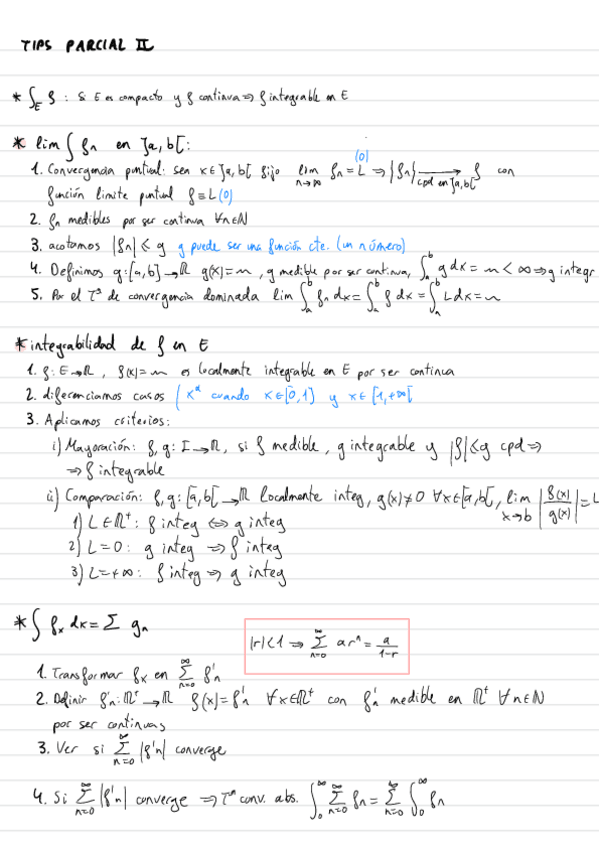 TIPS PARCIAL II
* ∫_E f : Si E es compacto y f continua ⇒ f integrable en E
* lim ∫ fn en ]a,b[:
1. Convergencia puntual: sea x∈]a,b[ fijo lim_{n→∞} fn = L (0) ⇒ {fn} → f cpd en ]a,b[ con
función límite puntual f≡L (0)
2. fn medibles por ser continua ∀n∈N
3. acotamos |fn| ≤ g g puede ser una función cte. (un número)
4. Definimos g:[a,b]→ℝ g(x)=m, g medible por ser continua, ∫_a^b g dx = m < ∞ ⇒ g integr
5. Por el Tª de convergencia dominada lim ∫_a^b fn dx = ∫_a^b f dx = ∫_a^b L dx = m
* integrabilidad de f en E
1. f: E→ℝ, f(x)=m es localmente integrable en E por ser continua
2. diferenciamos casos ( x^a cuando x∈[0,1) y x∈[1,+∞[
3. Aplicamos criterios:
i) Mayoración: f,g: I→ℝ, si f medible, g integrable y |f|≤g cpd ⇒
⇒ f integrable
ii) Comparación: f,g: [a,b[→ℝ localmente integ, g(x)≠0 ∀x∈[a,b[, lim_{x→b} |f(x)/g(x)| = L
1) L∈ℝ⁺: f integ ⇔ g integ
2) L=0: g integ ⇒ f integ
3) L=+∞: f integ ⇒ g integ
* ∫ fx dx = Σ gn
|r|<1 ⇒ Σ_{n=0}^∞ a rⁿ = a/(1-r)
1. Transformar fx en Σ_{n=0}^∞ f'n
2. Definir f'n: ℝ⁺→ℝ f(x)=f'n ∀x∈ℝ⁺ con f'n medible en ℝ⁺ ∀n∈N
por ser continuas
3. Ver si Σ_{n=0}^∞ |f'n| converge
4. Si Σ_{n=0}^∞ |f'n| converge ⇒ Tª conv. abs. ∫_0^∞ Σ_{n=0}^∞ fn = Σ_{n=0}^∞ ∫_0^∞ fn